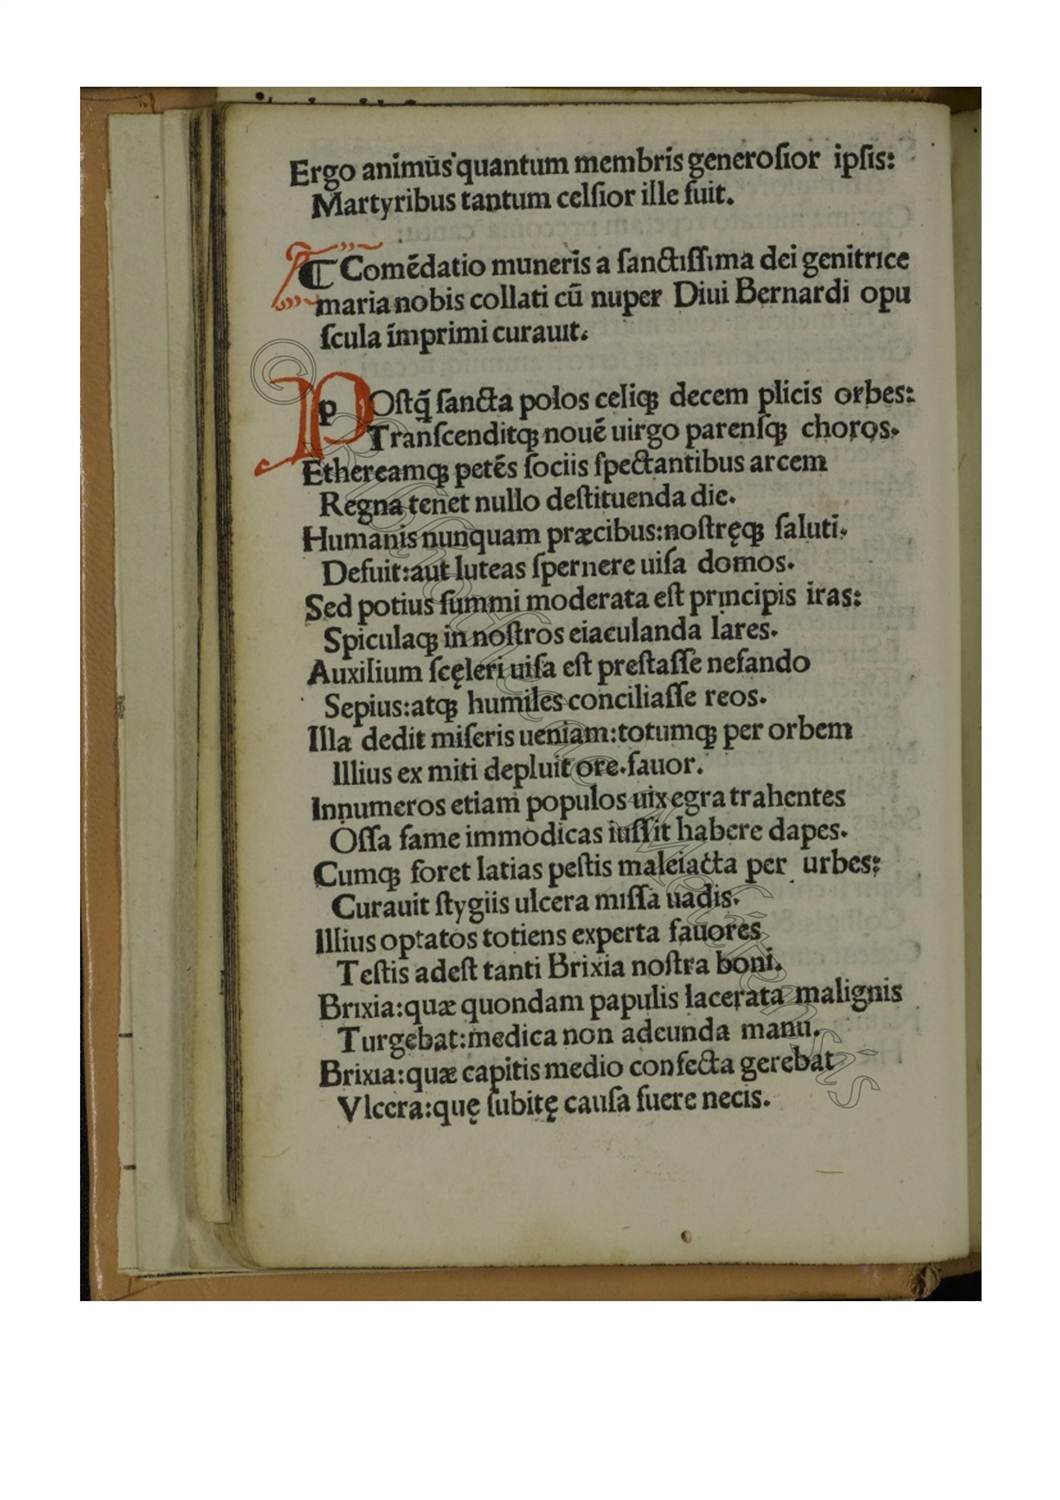 Ergo animūs quantum membris generoſior ipſis:
Martyribus tantum celſior ille fuit.
Comēdatio muneris a ſanctiſſima dei genitrice
maria nobis collati cū nuper Diui Bernardi opu
ſcula īmprimi curauit.
pOſtq̄ ſancta polos celiqꝫ decem plicis orbes:
Tranſcenditqꝫ nouē uirgo parenſqꝫ choros.
Ethereamqꝫ petēs ſociis ſpectantibus arcem
Regna tenet nullo deſtituenda die.
Humanis nunquam præcibus: noſtręqꝫ ſaluti.
Defuit: aut luteas ſpernere uiſa domos.
Sed potius ſummi moderata eſt principis iras:
Spiculaqꝫ in noſtros eiaculanda lares.
Auxilium ſcęleri uiſa eſt preſtaſſe nefando
Sepius: atqꝫ humiles conciliaſſe reos.
Illa dedit miſeris ueniam: totumqꝫ per orbem
Illius ex miti depluit ore. fauor.
Innumeros etiam populos uix egra trahentes
Oſſa fame immodicas iuſſit habere dapes.
Cumqꝫ foret latias peſtis maleiacta per urbes:
Curauit ſtygiis ulcera miſſa uadis.
Illius optatos totiens experta fauores
Teſtis adeſt tanti Brixia noſtra boni.
Brixia: quæ quondam papulis lacerata malignis
Turgebat: medica non adeunda manu.
Brixia: quæ capitis medio confecta gerebat
Vlcera: quę ſubitę cauſa fuere necis.